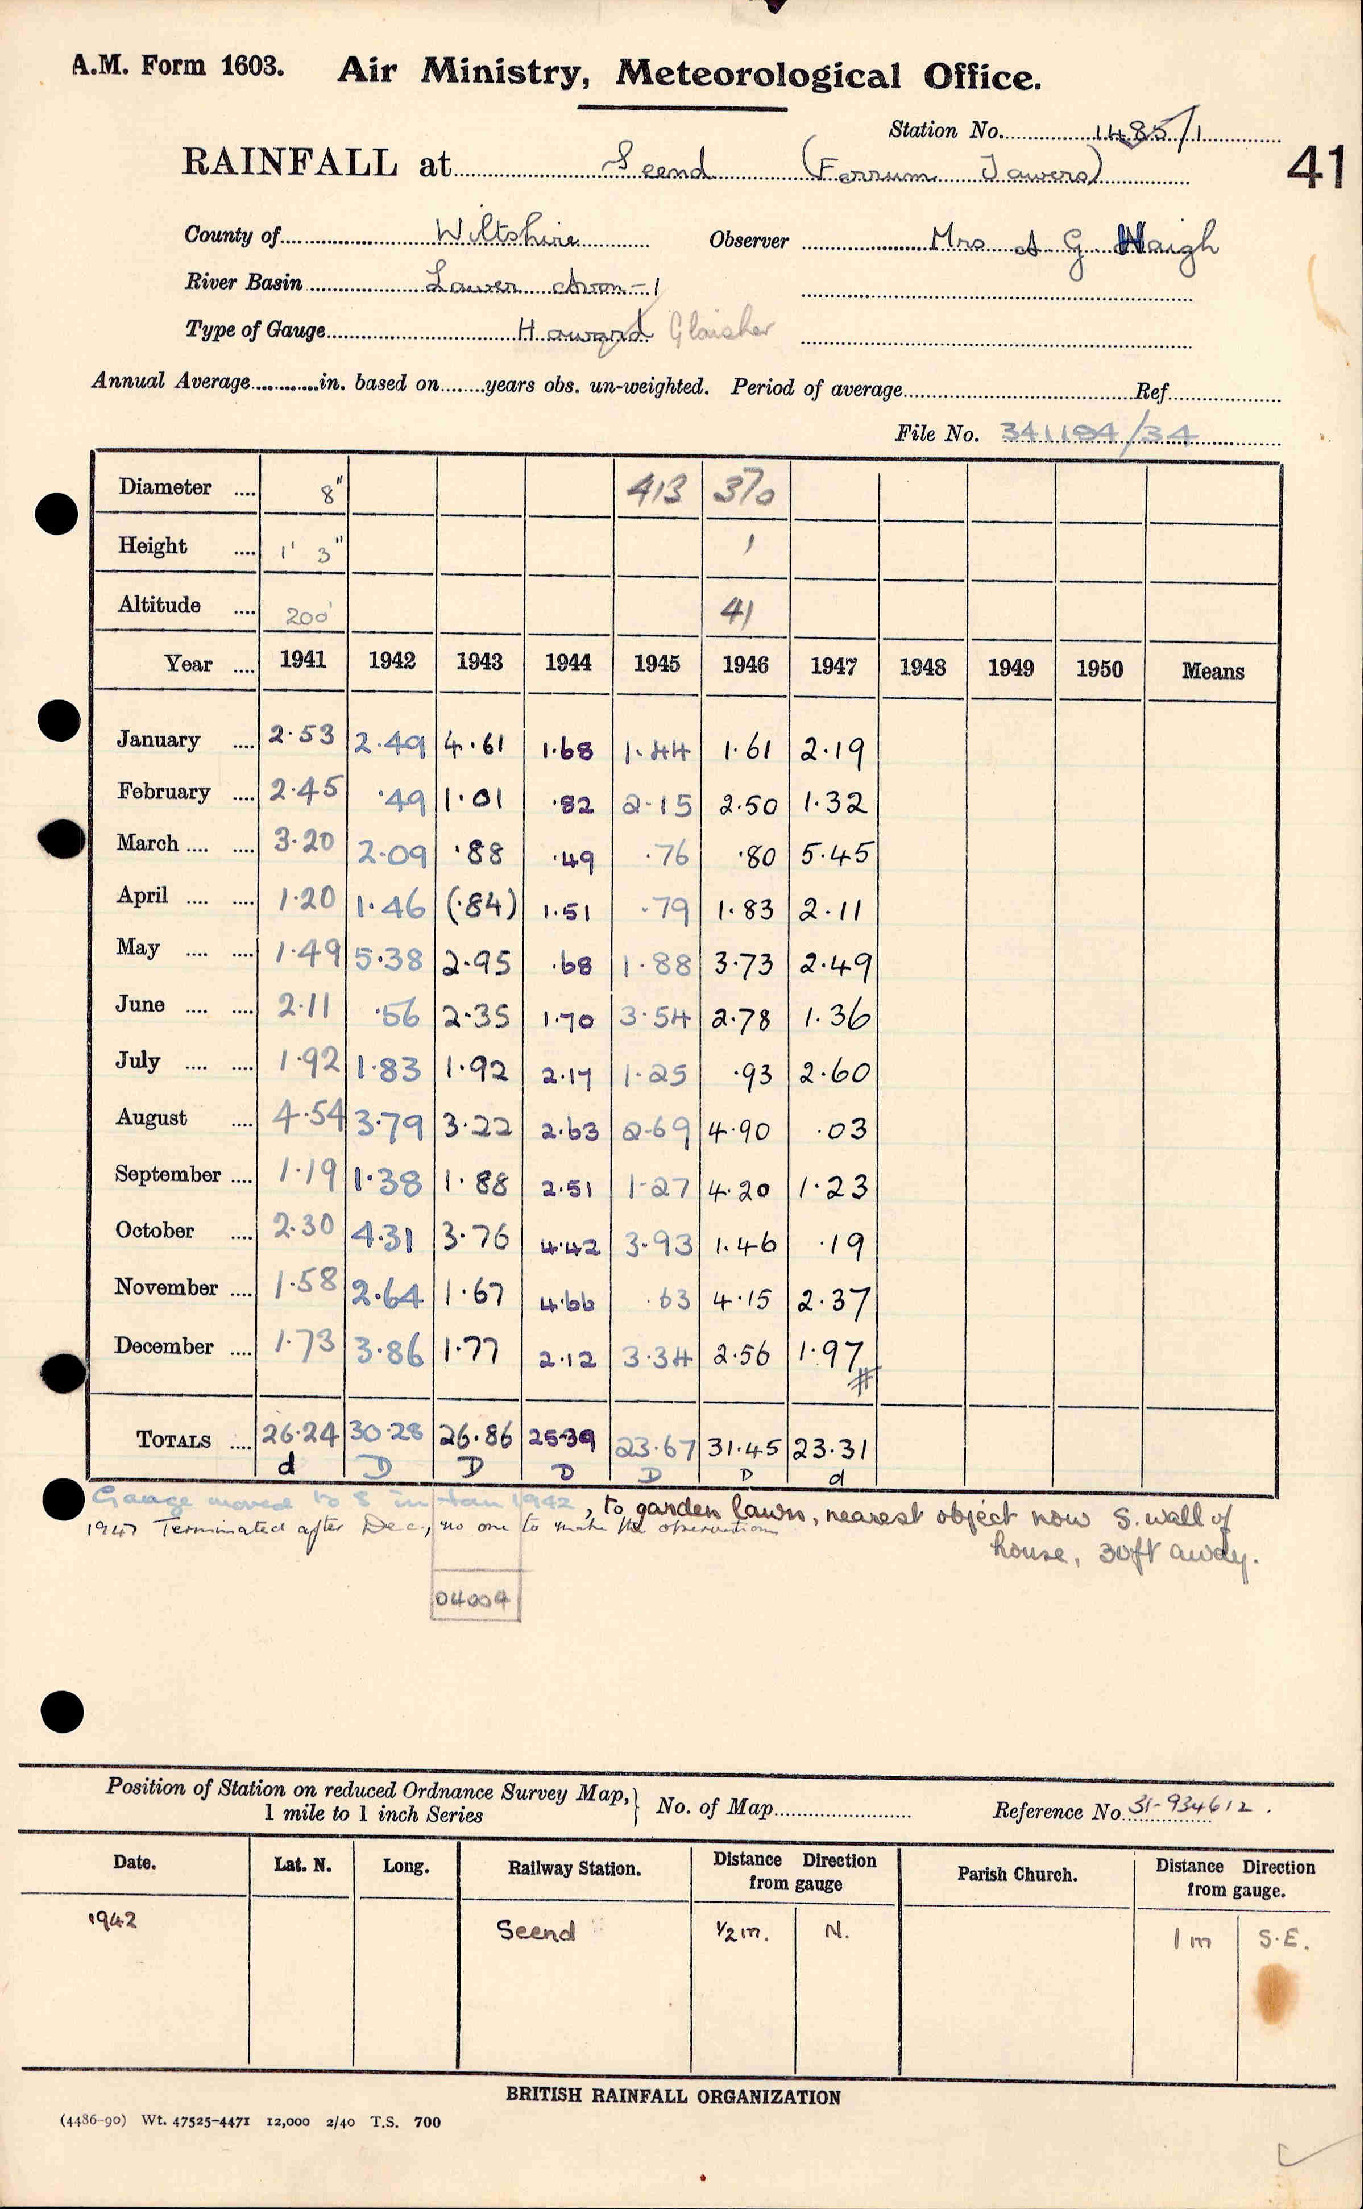 A.M. Form 1603. Air Ministry, Meteorological Office.
Station No. 1485/1
41
RAINFALL at Seend (Ferrum Towers)
County of Wiltshire Observer Mrs A G Haigh
River Basin Lower Avon-1
Type of Gauge Howard Glaisher
Annual Average in. based on years obs. un-weighted. Period of average Ref
File No. 341194/34
Diameter .... 8" 413 370
Height .... 1' 3" 1
Altitude .... 200' 41
Year .... 1941 1942 1943 1944 1945 1946 1947 1948 1949 1950 Means
January .... 2.53 2.49 4.61 1.68 1.44 1.61 2.19
February .... 2.45 .49 1.01 .82 2.15 2.50 1.32
March .... .... 3.20 2.09 .88 .49 .76 .80 5.45
April .... .... 1.20 1.46 (.84) 1.51 .79 1.83 2.11
May .... .... 1.49 5.38 2.95 .68 1.88 3.73 2.49
June .... .... 2.11 .56 2.35 1.70 3.54 2.78 1.36
July .... .... 1.92 1.83 1.92 2.17 1.25 .93 2.60
August .... 4.54 3.79 3.22 2.63 2.69 4.90 .03
September .... 1.19 1.38 1.88 2.51 1.27 4.20 1.23
October .... 2.30 4.31 3.76 4.42 3.93 1.46 .19
November .... 1.58 2.64 1.67 4.66 .63 4.15 2.37
December .... 1.73 3.86 1.77 2.12 3.34 2.56 1.97
#
TOTALS .... 26.24 30.28 26.86 25.39 23.67 31.45 23.31
d D D D D D d
Gauge moved to S in Jan 1942, to garden lawn, nearest object now S. wall of
house, 30ft away.
1947 Terminated after Dec, no one to make the observations
04009
Position of Station on reduced Ordnance Survey Map,
1 mile to 1 inch Series
No. of Map Reference No. 31-934612.
Date. Lat. N. Long. Railway Station. Distance Direction from gauge Parish Church. Distance Direction from gauge.
1942 Seend ½ m. N. 1 m S.E.
BRITISH RAINFALL ORGANIZATION
(4486-90) Wt. 47525-4471 12,000 2/40 T.S. 700